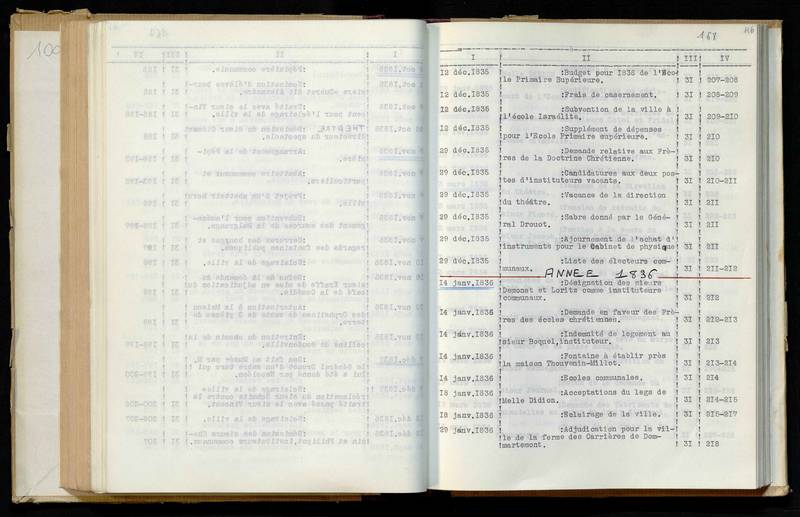 100
168
I II III IV
12 déc.1835 :Budget pour 1836 de l'Eco-
le Primaire Supérieure. 31 207-208
12 déc.1835 :Frais de casernement. 31 208-209
12 déc.1835 :Subvention de la ville à
l'école Israélite. 31 209-210
12 déc.1835 :Supplément de dépenses
pour l'Ecole Primaire supérieure. 31 210
29 déc.1835 :Demande relative aux Frè-
res de la Doctrine Chrétienne. 31 210
29 déc.1835 :Candidatures aux deux pos-
tes d'instituteurs vacants. 31 210-211
29 déc.1835 :Vacance de la direction
du théâtre. 31 211
29 déc.1835 :Sabre donné par le Géné-
ral Drouot. 31 211
29 déc.1835 :Ajournement de l'achat d'
instruments pour le Cabinet de physique 31 211
29 déc.1835 :Liste des électeurs com-
munaux. 31 211-212
ANNEE 1836
14 janv.1836 :Désignation des sieurs
Demonet et Loritz comme instituteurs
communaux. 31 212
14 janv.1836 :Demande en faveur des Frè-
res des écoles chrétiennes. 31 212-213
14 janv.1836 :Indemnité de logement au
sieur Boquel,instituteur. 31 213
14 janv.1836 :Fontaine à établir près
la maison Thouvenin-Millot. 31 213-214
14 janv.1836 :Ecoles communales. 31 214
18 janv.1836 :Acceptations du legs de
Melle Didion. 31 214-215
18 janv.1836 :Eclairage de la ville. 31 215-217
29 janv.1836 :Adjudication pour la vil-
le de la ferme des Carrières de Dom-
martemont. 31 218